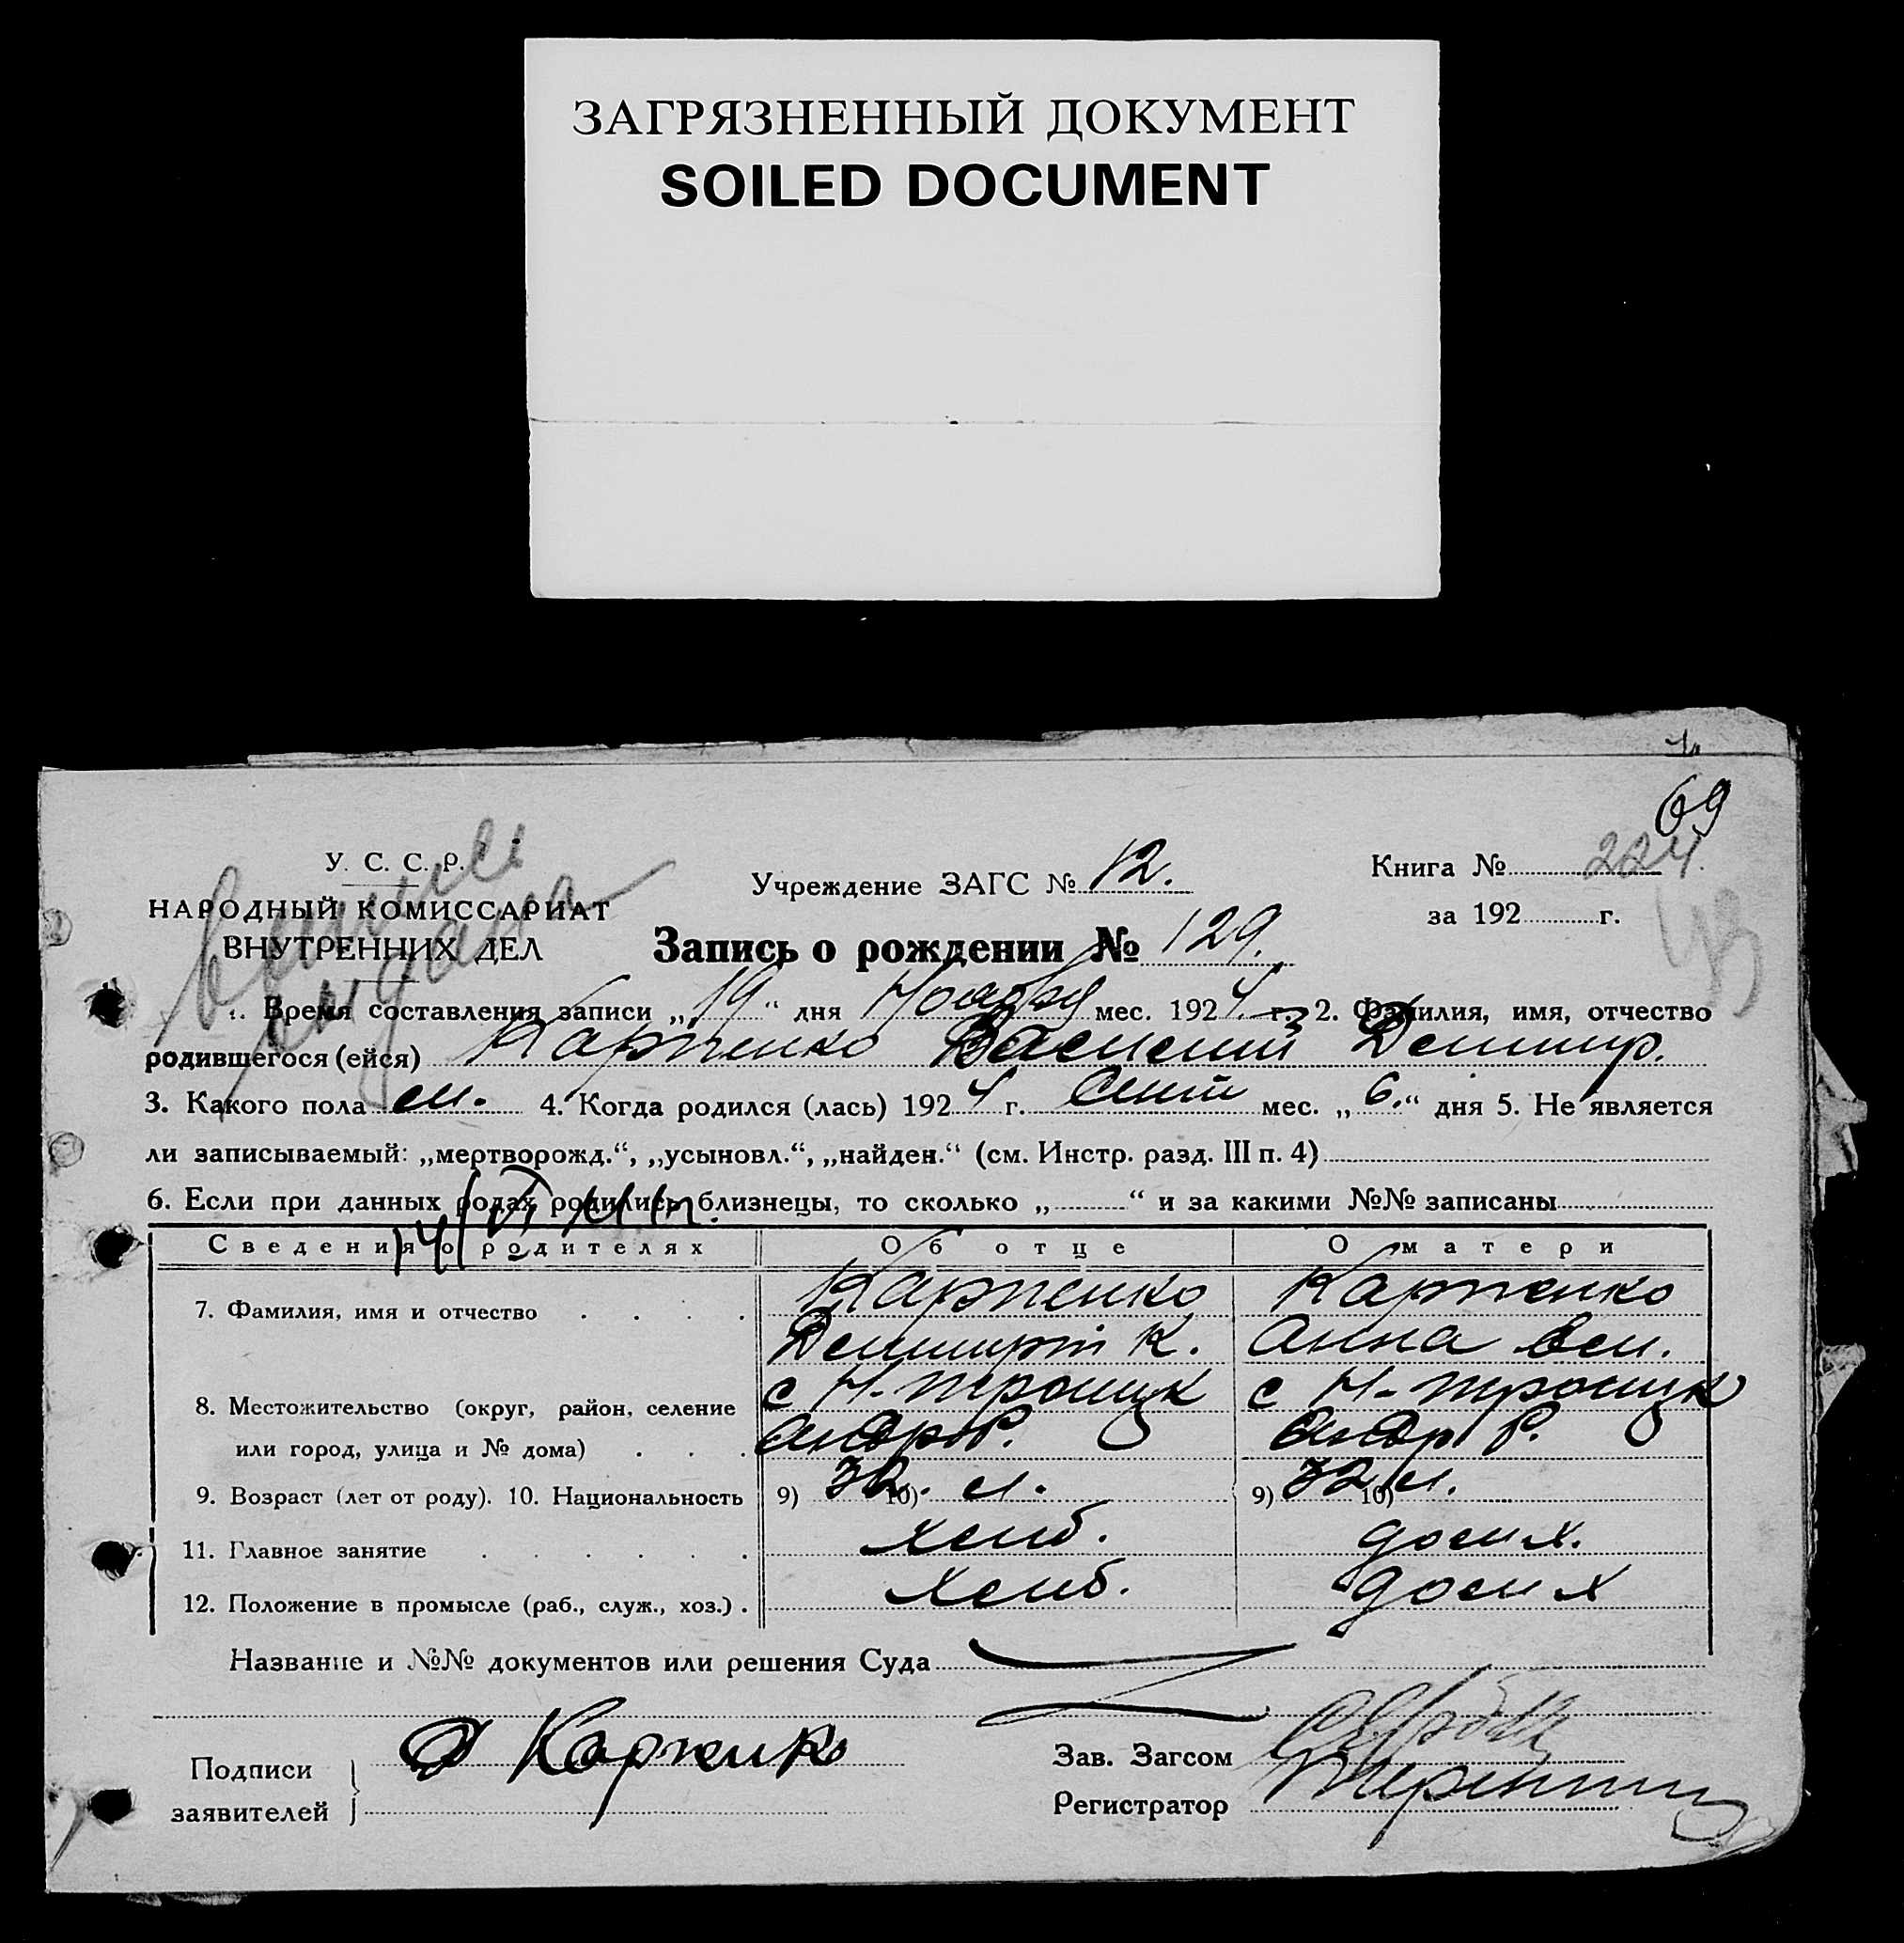 ЗАГРЯЗНЕННЫЙ ДОКУМЕНТ
SOILED DOCUMENT
69
У. С. С. Р.
НАРОДНЫЙ КОМИССАРИАТ
ВНУТРЕННИХ ДЕЛ
Учреждение ЗАГС № 12.
Книга № 224
за 192 г.
Запись о рождении № 129.
Время составления записи „19“ дня Ноября мес. 1924 г. 2. Фамилия, имя, отчество
родившегося (ейся) Карпенко Василий Демитр.
3. Какого пола м. 4. Когда родился (лась) 1924 г. Сент мес. „6.“ дня 5. Не является
ли записываемый: „мертворожд.“, „усыновл.“, „найден.“ (см. Инстр. разд. III п. 4)
6. Если при данных родах родились близнецы, то сколько „ “ и за какими №№ записаны
Сведения о родителях Об отце О матери
7. Фамилия, имя и отчество Карпенко Карпенко
Демитрт К. Анна
8. Местожительство (округ, район, селение с Н-троицк с Н-троицк
или город, улица и № дома) Андр Р. Андр Р.
9. Возраст (лет от роду). 10. Национальность 9) 32. 10) 9) 32 10)
11. Главное занятие хлиб. домх.
12. Положение в промысле (раб., служ., хоз.) хлиб. домх
Название и №№ документов или решения Суда
Подписи
заявителей
Д Карпенко
Зав. Загсом
Регистратор